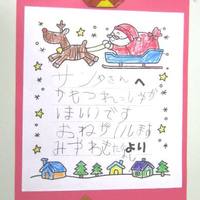 サンタさんへ
かもつれっしゃが
ほしいです
おねがいします
より